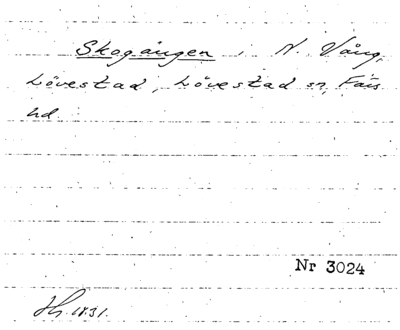 Skogången, N. Vång,
Lövestad, Lövestad sn, Färs
hd.
Nr 3024
1831